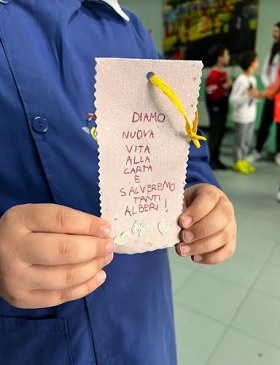 DIAMO
NUOVA
VITA
ALLA
CARTA
E
SALVEREMO
TANTI
ALBERI!